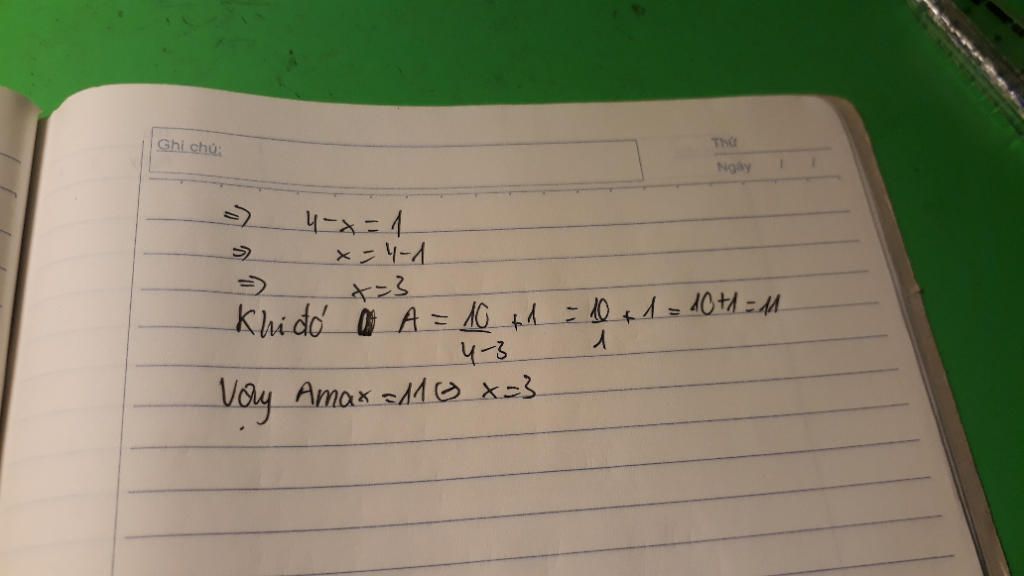 Ghi chú:
Thứ
Ngày / /
=> 4-x=1
=> x=4-1
=> x=3
Khi đó A = 10/4-3 +1 = 10/1 + 1 = 10+1=11
Vậy Amax =11 <=> x=3